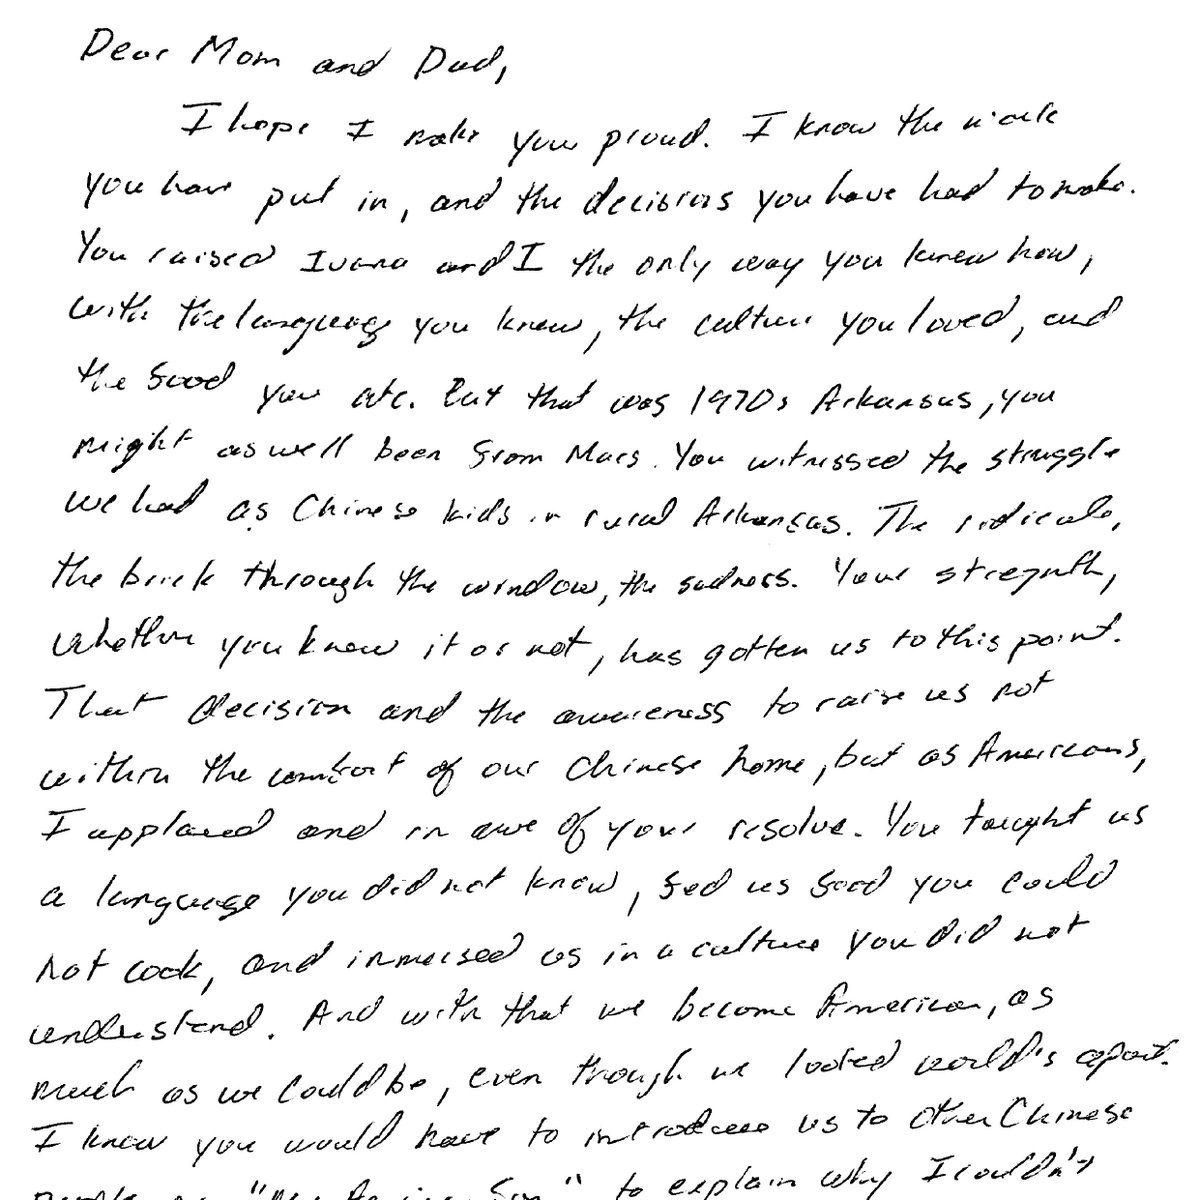 Dear Mom and Dad,
I hope I make you proud. I know the work
you have put in, and the decisions you have had to make.
You raised Ivana and I the only way you knew how,
with the language you knew, the culture you loved, and
the food you ate. But that was 1970s Arkansas, you
might as well been from Mars. You witnessed the struggle
we had as Chinese kids in rural Arkansas. The ridicule,
the brick through the window, the sadness. Your strength,
whether you know it or not, has gotten us to this point.
That decision and the awareness to raise us not
within the comfort of our Chinese home, but as Americans,
I applaud and in awe of your resolve. You taught us
a language you did not know, fed us food you could
not cook, and immersed us in a culture you did not
understand. And with that we become American, as
much as we could be, even though we looked world's apart.
I know you would have to introduce us to other Chinese
people as "My American Son" to explain why I couldn't